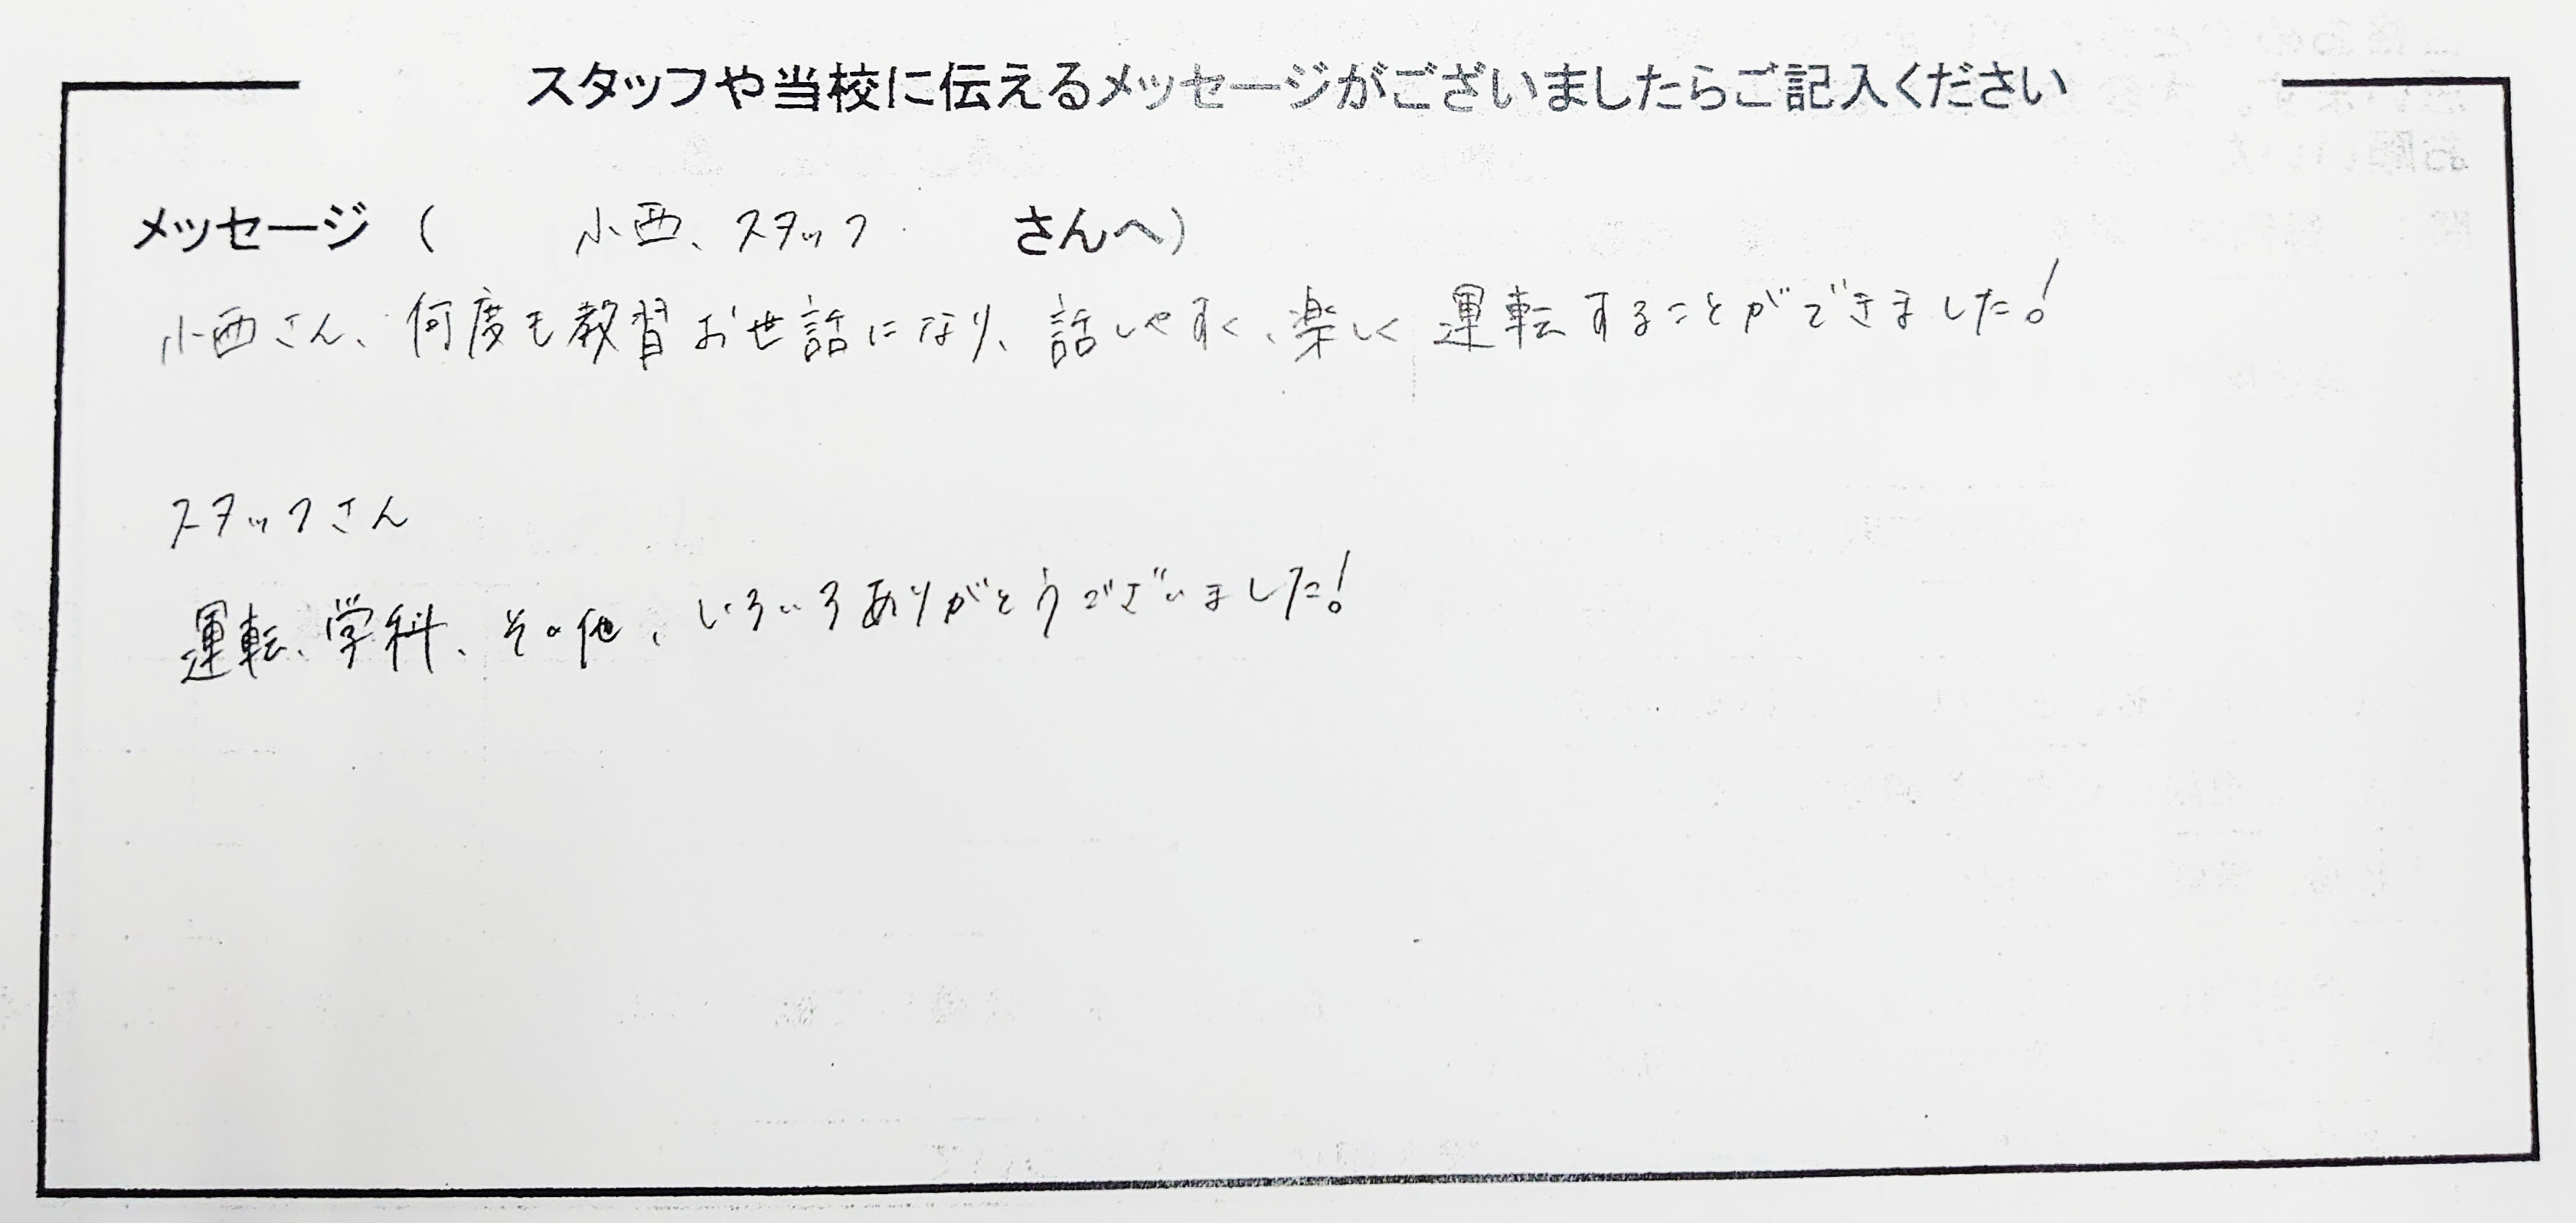 スタッフや当校に伝えるメッセージがございましたらご記入ください
メッセージ ( 小西、スタッフ さんへ)
小西さん、何度も教習お世話になり、話しやすく、楽しく運転することができました!
スタッフさん
運転、学科、その他、いろいろありがとうございました!